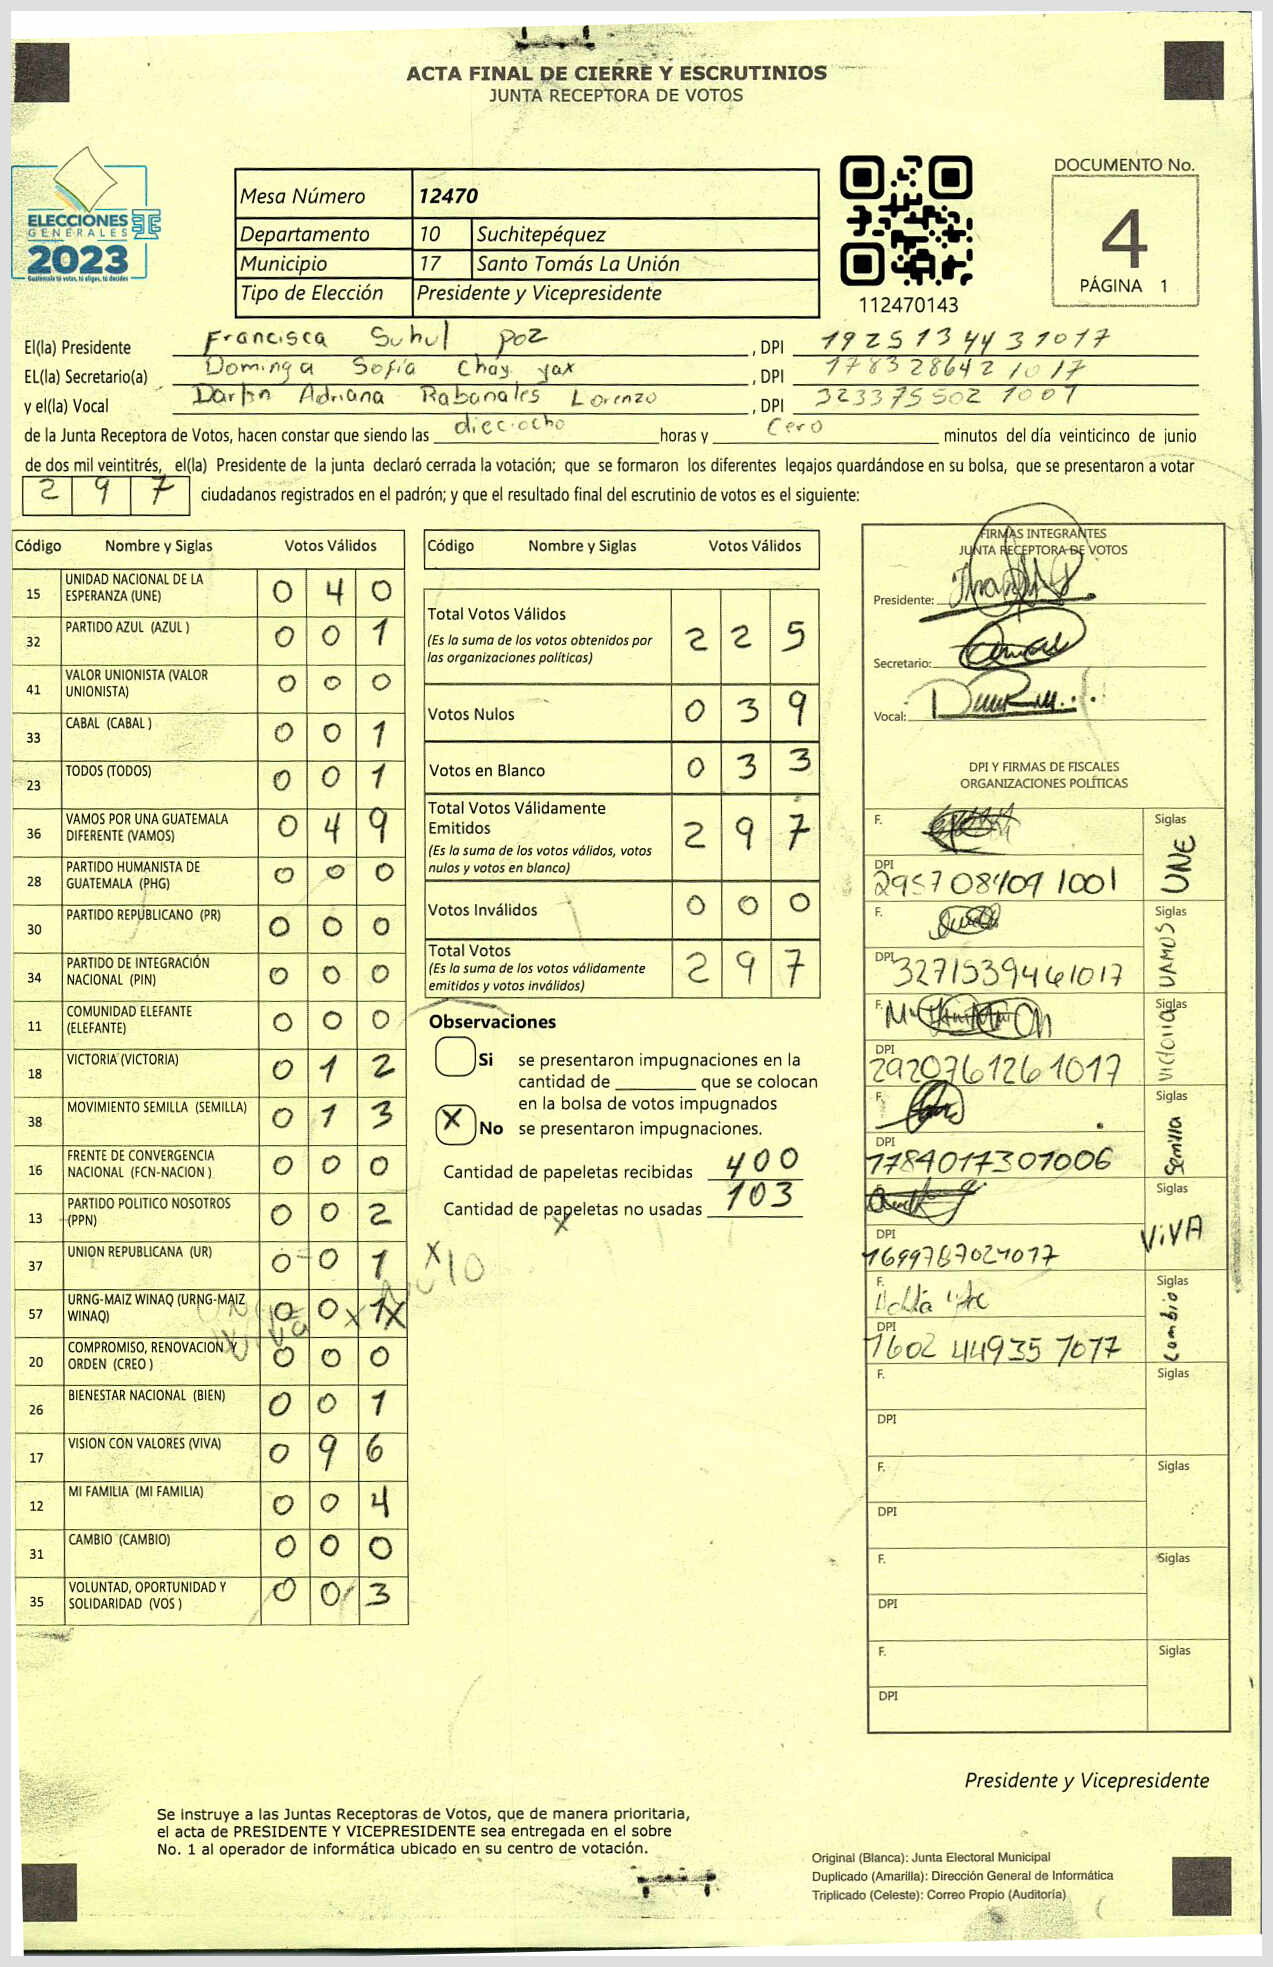 ACTA FINAL DE CIERRE Y ESCRUTINIOS
JUNTA RECEPTORA DE VOTOS
ELECCIONES
GENERALES
2023
Guatemala tú votas, tú eliges, tú decides
Mesa Número 12470
Departamento 10 Suchitepéquez
Municipio 17 Santo Tomás La Unión
Tipo de Elección Presidente y Vicepresidente
112470143
DOCUMENTO No.
4
PÁGINA 1
El(la) Presidente Francisca Suhul poz , DPI 1925134431017
EL(la) Secretario(a) Dominga Sofía Chay yax , DPI 1783286421017
y el(la) Vocal Adriana Rabanales Lorenzo , DPI 3233755021001
de la Junta Receptora de Votos, hacen constar que siendo las dieciocho horas y cero minutos del día veinticinco de junio
de dos mil veintitrés, el(la) Presidente de la junta declaró cerrada la votación; que se formaron los diferentes legajos guardándose en su bolsa, que se presentaron a votar
297 ciudadanos registrados en el padrón; y que el resultado final del escrutinio de votos es el siguiente:
Código Nombre y Siglas Votos Válidos
15 UNIDAD NACIONAL DE LA ESPERANZA (UNE) 0 4 0
32 PARTIDO AZUL (AZUL ) 0 0 1
41 VALOR UNIONISTA (VALOR UNIONISTA) 0 0 0
33 CABAL (CABAL ) 0 0 1
23 TODOS (TODOS) 0 0 1
36 VAMOS POR UNA GUATEMALA DIFERENTE (VAMOS) 0 4 9
28 PARTIDO HUMANISTA DE GUATEMALA (PHG) 0 0 0
30 PARTIDO REPUBLICANO (PR) 0 0 0
34 PARTIDO DE INTEGRACIÓN NACIONAL (PIN) 0 0 0
11 COMUNIDAD ELEFANTE (ELEFANTE) 0 0 0
18 VICTORIA (VICTORIA) 0 1 2
38 MOVIMIENTO SEMILLA (SEMILLA) 0 1 3
16 FRENTE DE CONVERGENCIA NACIONAL (FCN-NACION ) 0 0 0
13 PARTIDO POLITICO NOSOTROS (PPN) 0 0 2
37 UNION REPUBLICANA (UR) 0 0 1
57 URNG-MAIZ WINAQ (URNG-MAIZ WINAQ) 0 0 1
20 COMPROMISO, RENOVACION Y ORDEN (CREO ) 0 0 0
26 BIENESTAR NACIONAL (BIEN) 0 0 1
17 VISION CON VALORES (VIVA) 0 9 6
12 MI FAMILIA (MI FAMILIA) 0 0 4
31 CAMBIO (CAMBIO) 0 0 0
35 VOLUNTAD, OPORTUNIDAD Y SOLIDARIDAD (VOS ) 0 0 3
Código Nombre y Siglas Votos Válidos
Total Votos Válidos 2 2 5
(Es la suma de los votos obtenidos por
las organizaciones políticas)
Votos Nulos 0 3 9
Votos en Blanco 0 3 3
Total Votos Válidamente
Emitidos 2 9 7
(Es la suma de los votos válidos, votos
nulos y votos en blanco)
Votos Inválidos 0 0 0
Total Votos 2 9 7
(Es la suma de los votos válidamente
emitidos y votos inválidos)
Observaciones
Si se presentaron impugnaciones en la
cantidad de ________ que se colocan
en la bolsa de votos impugnados
X No se presentaron impugnaciones.
Cantidad de papeletas recibidas 400
Cantidad de papeletas no usadas 103
FIRMAS INTEGRANTES
JUNTA RECEPTORA DE VOTOS
Presidente:
Secretario:
Vocal:
DPI Y FIRMAS DE FISCALES
ORGANIZACIONES POLÍTICAS
F. Siglas UNE
DPI 2957084091001
F. Siglas VAMOS
DPI 3271539461017
F. Siglas Victoria
DPI 2920761261017
F. Siglas Semilla
DPI 1784017301006
F. Siglas ViVA
DPI
F. Siglas Cambio
DPI 1602 44935 1017
F. Siglas
DPI
F. Siglas
DPI
F. Siglas
DPI
F. Siglas
DPI
Presidente y Vicepresidente
Se instruye a las Juntas Receptoras de Votos, que de manera prioritaria,
el acta de PRESIDENTE Y VICEPRESIDENTE sea entregada en el sobre
No. 1 al operador de informática ubicado en su centro de votación.
Original (Blanca): Junta Electoral Municipal
Duplicado (Amarilla): Dirección General de Informática
Triplicado (Celeste): Correo Propio (Auditoría)